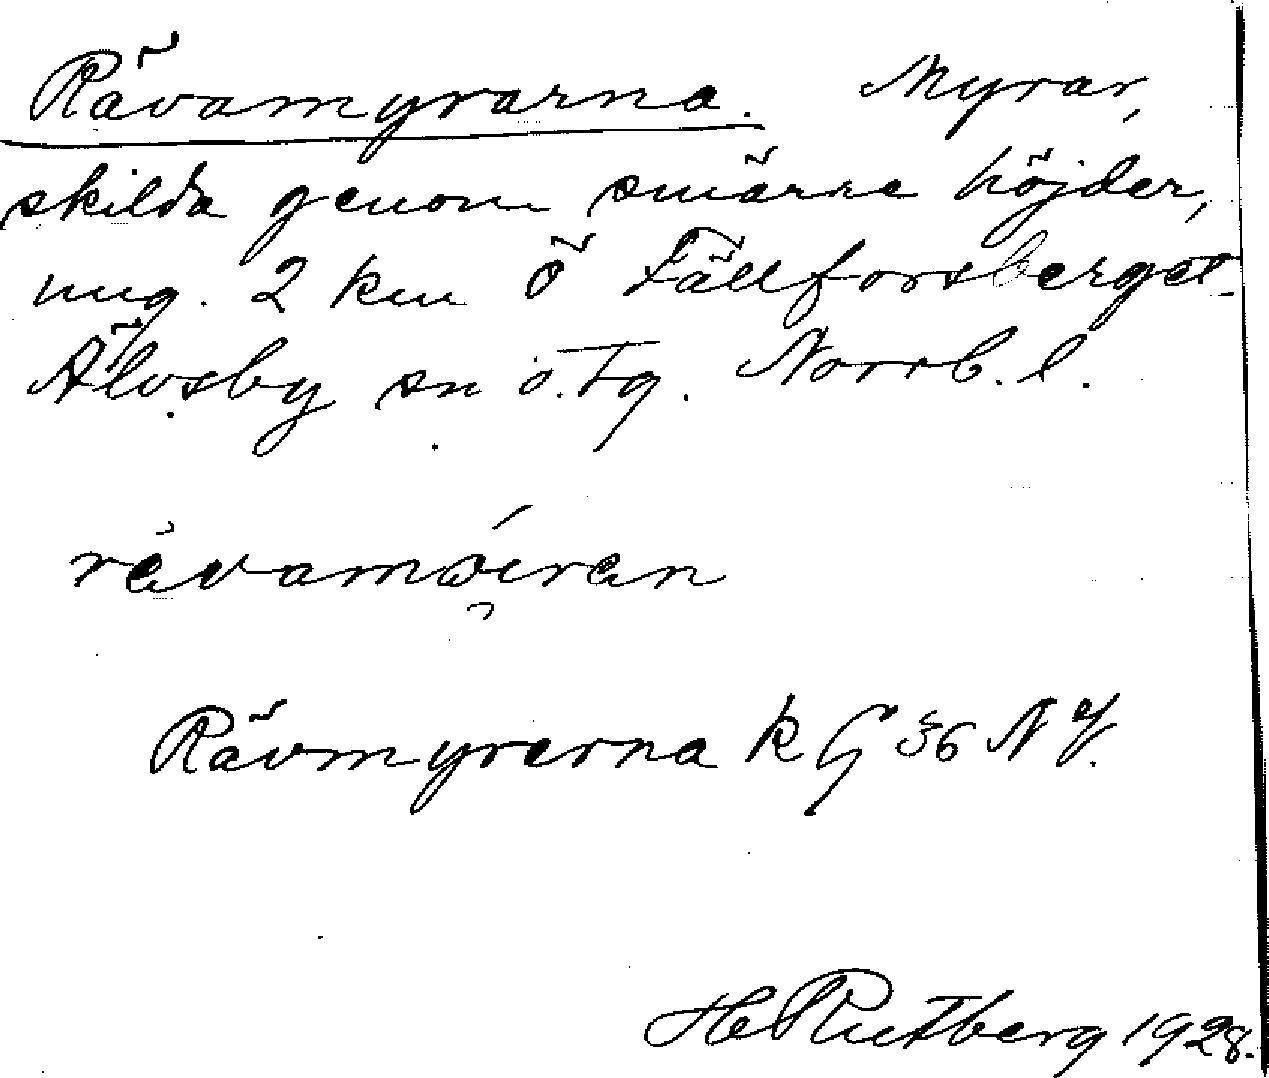 Rävamyrarna. Myrar,
skilda genom smärre höjder,
ung. 2 km Ö Fällforsberget.
Älvsby sn ö. Tg. Norrb. l.
rävamöiran
Rävmyrarna k G 36 NV.
H Rutberg 1928.